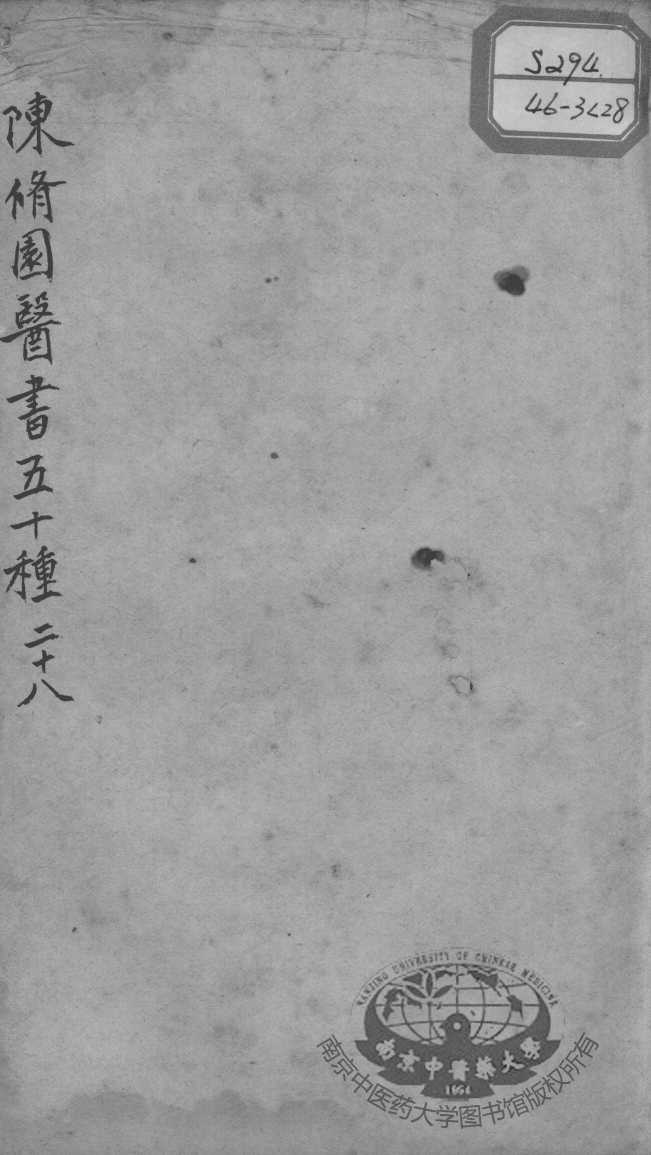 S294.
46-3<28
陳脩園醫書五十種 二十八
NANJING UNIVERSITY OF CHINESE MEDICINE
南京中醫藥大學
1954
南京中医药大学图书馆版权所有